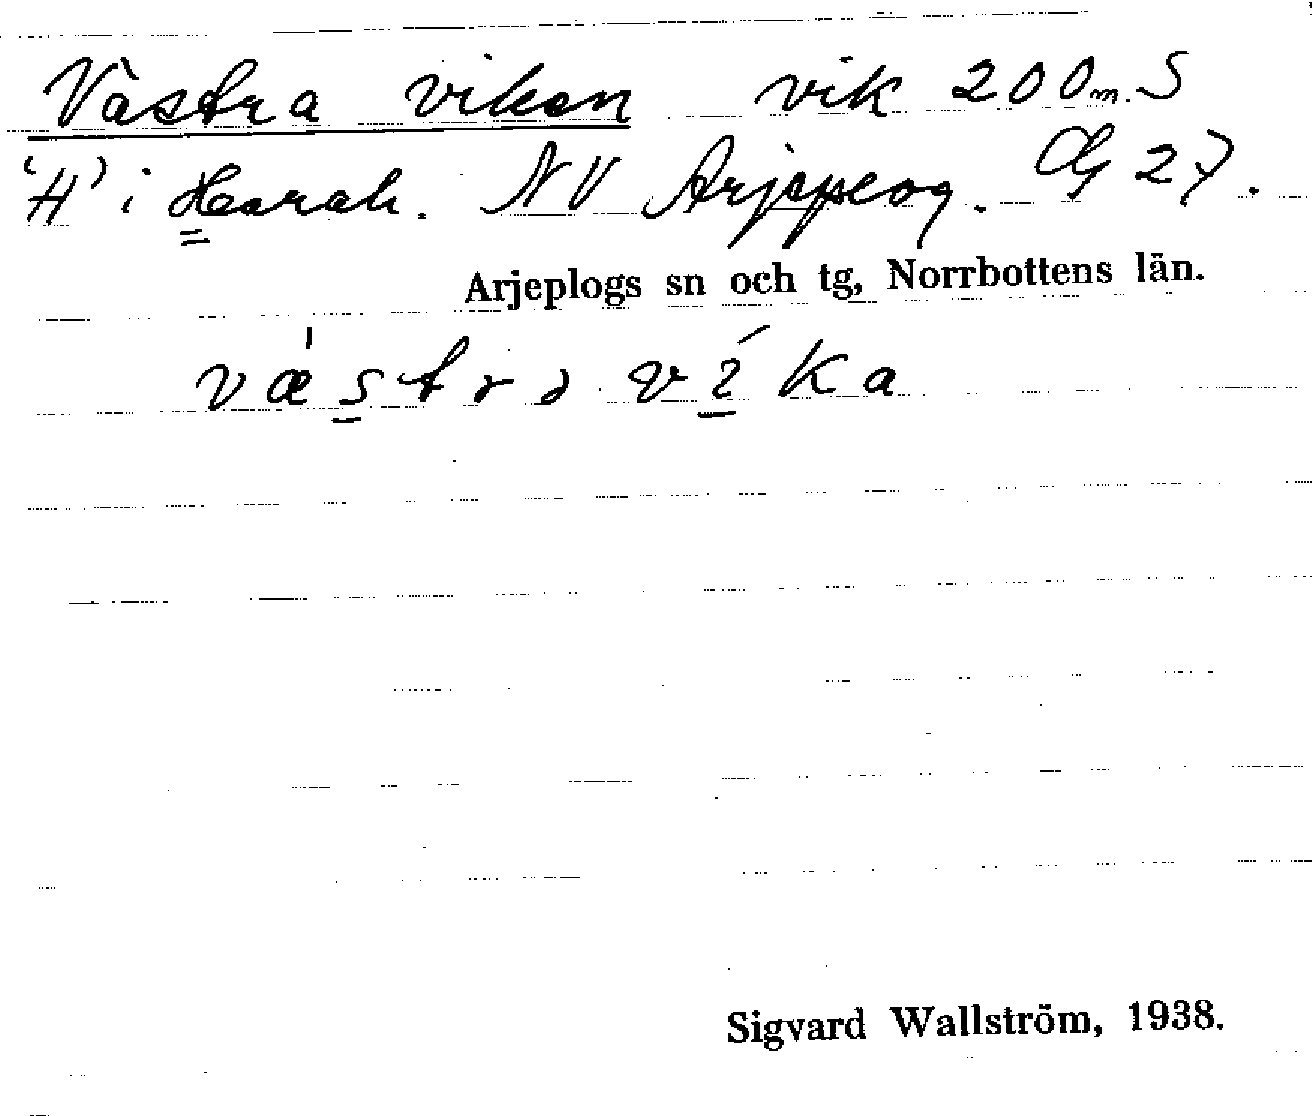 Västra viken vik 200 m. S
'H' i Hearah. NV Arjepeog. Cg 27.
Arjeplogs sn och tg, Norrbottens län.
væ̍strə víka
Sigvard Wallström, 1938.